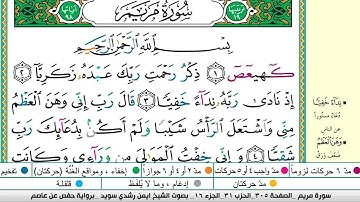 سُورَةُ مَرْيَمَ
بِسْمِ اللَّهِ الرَّحْمَٰنِ الرَّحِيمِ
كهيعص ١ ذِكْرُ رَحْمَتِ رَبِّكَ عَبْدَهُ زَكَرِيَّا ٢
إِذْ نَادَىٰ رَبَّهُ نِدَاءً خَفِيًّا ٣ قَالَ رَبِّ إِنِّي وَهَنَ الْعَظْمُ
مِنِّي وَاشْتَعَلَ الرَّأْسُ شَيْبًا وَلَمْ أَكُنْ بِدُعَائِكَ رَبِّ
شَقِيًّا ٤ وَإِنِّي خِفْتُ الْمَوَالِيَ مِنْ وَرَائِي وَكَانَتِ
نِدَاءً خَفِيًّا
وَهَنَ الْعَظْمُ
ضعف ورقّ
مدّ ٦ حركات لزوماً
مدّ واجب ٤ أو ٥ حركات
مدّ ٢ أو ٤ أو ٦ جوازاً
إخفاء، ومواقع الغنّة (حركتان)
تفخيم
مدّ حركتان
إدغام، وما لا يُلفظ
قلقلة
سورة مريم _ الصفحة ٣٠٥ _ الحزب ٣١ _ الجزء ١٦ _ بصوت الشيخ ايمن رشدي سويد _ برواية حفص عن عاصم